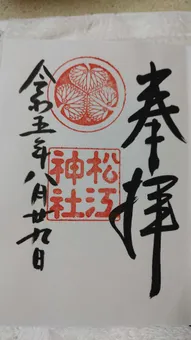 奉拝
松江
神社
令和五年八月廿九日